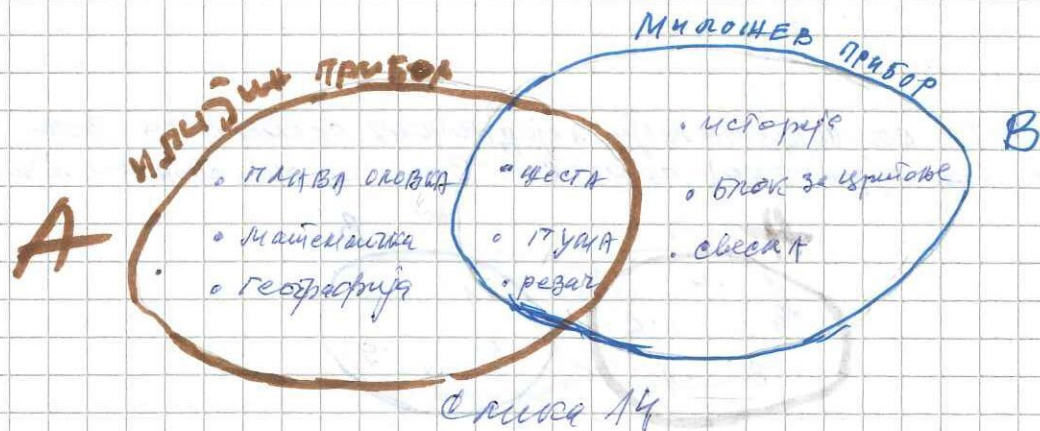 Милошев прибор
Илијин прибор
А
В
• плава оловка
• математика
• географија
• шеста
• гума
• резач
• историја
• блок за цртање
• свеска
Слика 14